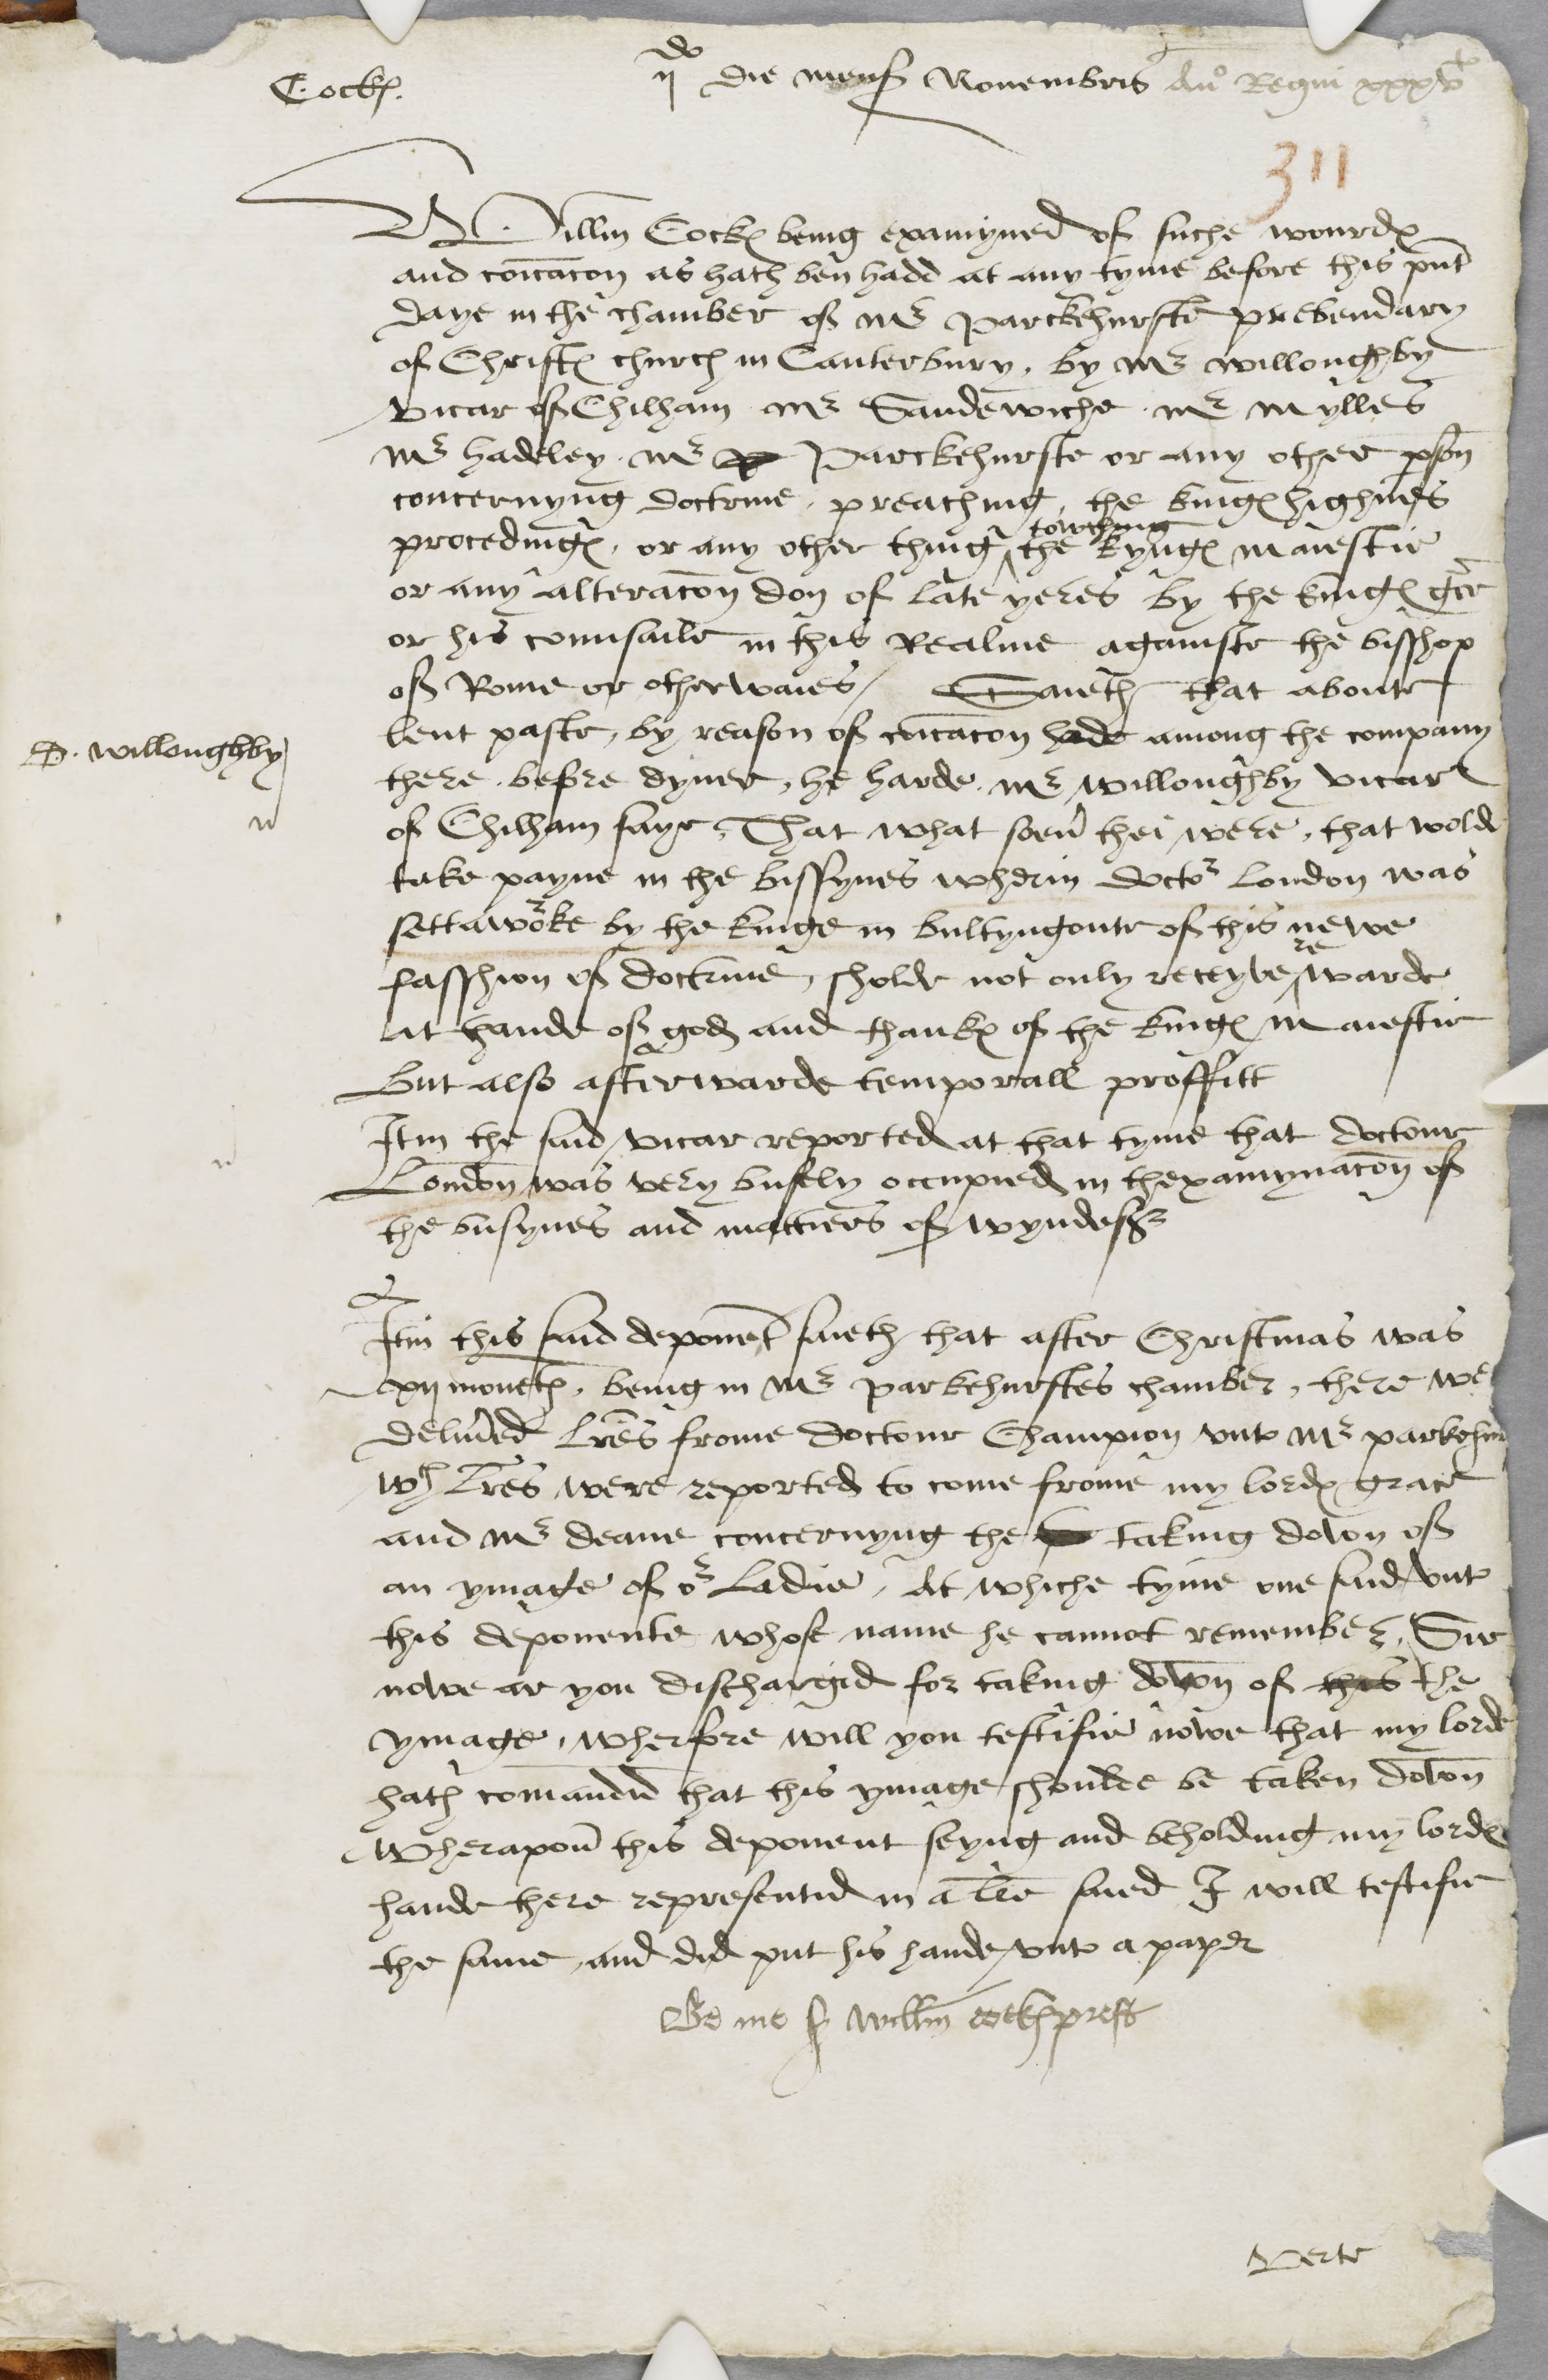 Cocks.
ij do die mens Novembris Ano Regni xxxv to
311
Willm Cocks being examyned of suche wourds
and coicacon as hath ben hadd at any tyme before this pnt
daye in the chamber of Mr Parckehurste prebendary
of Christs church in Canterbury, by Mr Willoughby
vicar of Chilham Mr Sandewiche Mr Mylles
Mr Hadeley Mr Parckehurste or any other pson
concernyng doctrine, preaching, the kings highnes
procedings, or any other thing towching the kyngs maiestie
or any alteracon don of late yeres by the kings gce
or his counsaile in this Realme againste the bisshop
of Rome or otherwaies / Saieth that aboute
D. Willoughby
lent paste, by reason of coicacon hade among the company
there before dyner, he harde Mr Willoughby vicar
of Chilham saye, That what soeu thei were, that wold
take payne in the bissynes wherin doctor London was
sett aworke by the kinge in bultyng oute of this newe
fasshion of doctrine, sholde not only receyve rewarde
at hande of god and thanks of the kings Maiestie
But also afterwarde temporall proffitt
Itm the said vicar reported at that tyme that doctour
London was very busely occupied in thexamynacon of
the busynes and mattiers of Wyndesor
Itm this said deponet saieth that after Christmas was
xij moneths, being in Mr parkehurstes chamber, there we
delived lres frome doctour Champion unto Mr parkehur
wch lres were reported to come frome my lords grace
and Mr deane concernyng the taking down of
an ymage of or Ladie, At whiche tyme one said unto
this deponente whose name he cannot remember, Sir
nowe ar you dischargid for taking down of this the
ymage, wherfore will you testifie nowe that my lorde
hath comandid that this ymage shoulde be taken down
Wherapon this deponent seyng and beholding my lords
hande there representid in a lre saied I will testifie
the same, and did put his hande unto a paper
Be me sr Willm cocks prest
Verte